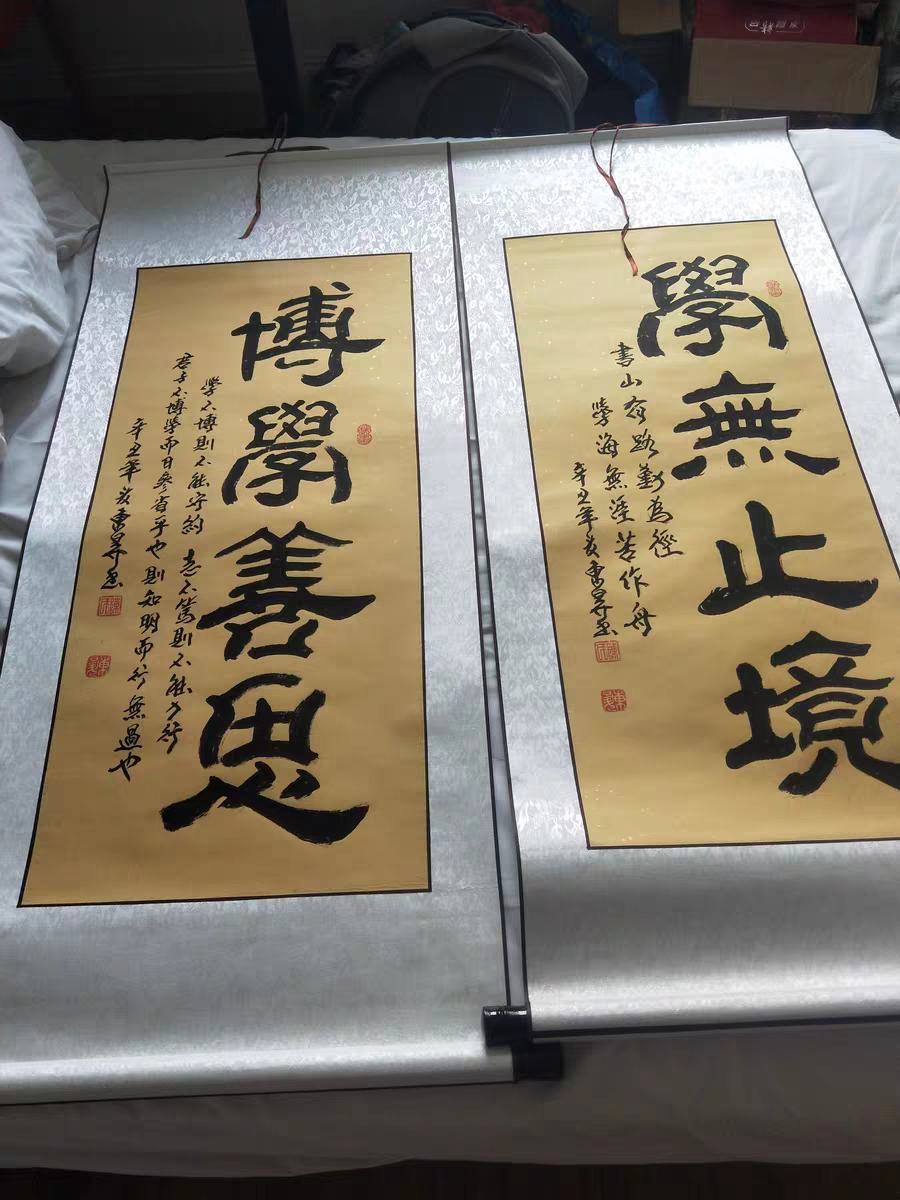 博學善思
學不博則不能守約 志不篤則不能力行
君子不博學而日參省乎也則知明而行無過也
辛丑年
學無止境
書山有路勤為徑
學海無涯苦作舟
辛丑年